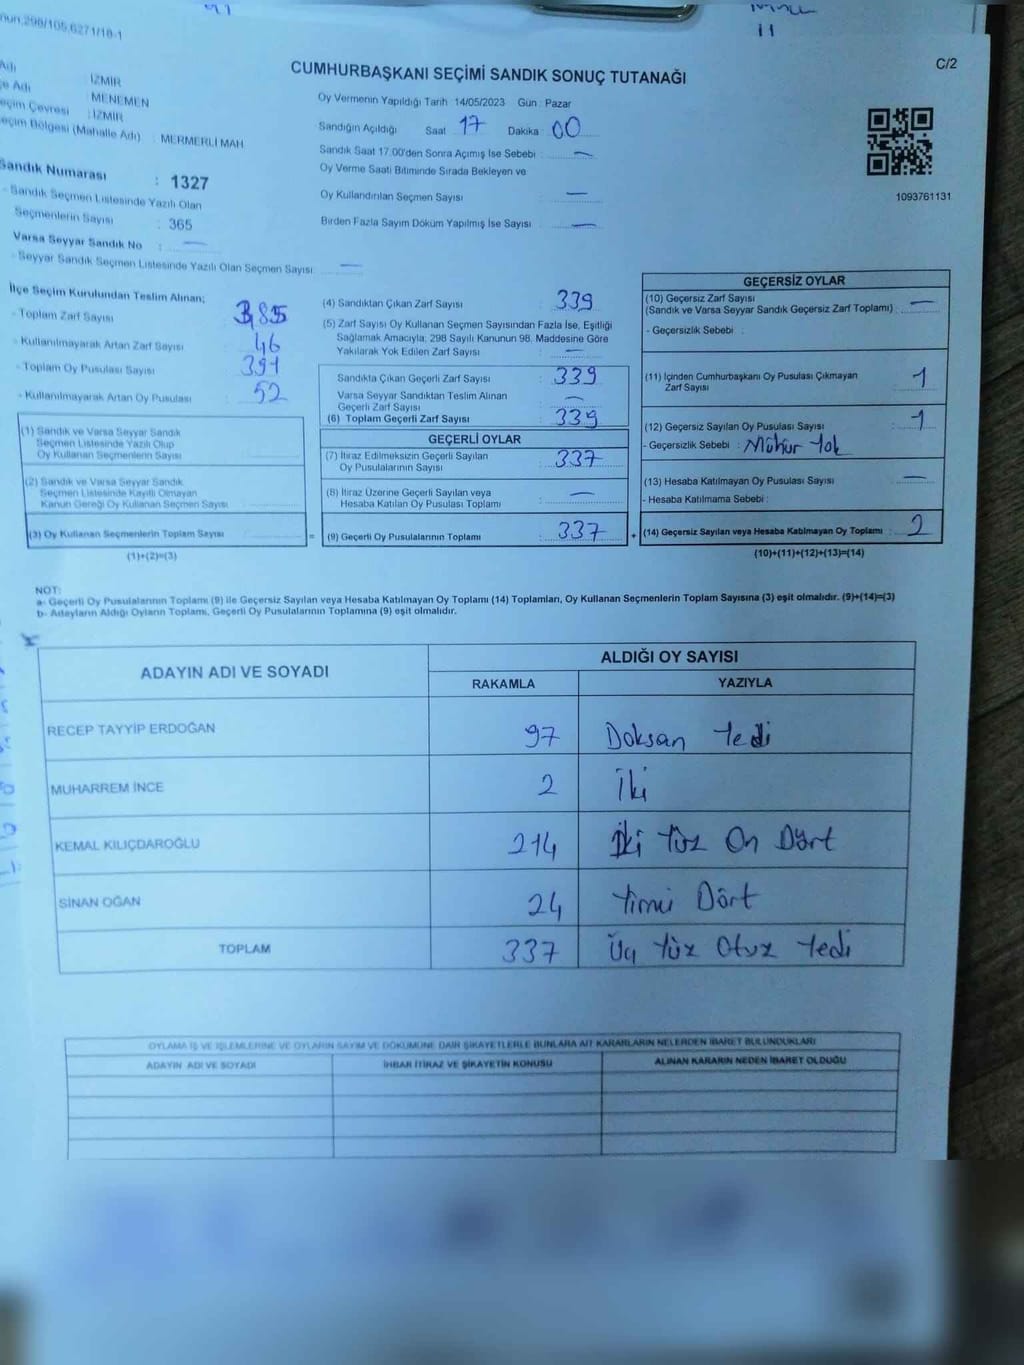 C/2
CUMHURBAŞKANI SEÇİMİ SANDIK SONUÇ TUTANAĞI
: İZMİR
: MENEMEN
: İZMİR
Seçim Bölgesi (Mahalle Adı) : MERMERLİ MAH
Sandık Numarası : 1327
- Sandık Seçmen Listesinde Yazılı Olan
Seçmenlerin Sayısı : 365
Varsa Seyyar Sandık No : —
- Seyyar Sandık Seçmen Listesinde Yazılı Olan Seçmen Sayısı : —
Oy Vermenin Yapıldığı Tarih 14/05/2023 Gün : Pazar
Sandığın Açıldığı Saat 17 Dakika 00
Sandık Saat 17:00'den Sonra Açımış İse Sebebi : —
Oy Verme Saati Bitiminde Sırada Bekleyen ve
Oy Kullandırılan Seçmen Sayısı : —
Birden Fazla Sayım Döküm Yapılmış İse Sayısı : —
1093761131
İlçe Seçim Kurulundan Teslim Alınan;
- Toplam Zarf Sayısı : 385
- Kullanılmayarak Artan Zarf Sayısı : 46
- Toplam Oy Pusulası Sayısı : 391
- Kullanılmayarak Artan Oy Pusulası : 52
(1) Sandık ve Varsa Seyyar Sandık
Seçmen Listesinde Yazılı Olup
Oy Kullanan Seçmenlerin Sayısı :
(2) Sandık ve Varsa Seyyar Sandık
Seçmen Listesinde Kayıtlı Olmayan
Kanun Gereği Oy Kullanan Seçmen Sayısı :
(3) Oy Kullanan Seçmenlerin Toplam Sayısı : =
(1)+(2)=(3)
(4) Sandıktan Çıkan Zarf Sayısı : 339
(5) Zarf Sayısı Oy Kullanan Seçmen Sayısından Fazla İse, Eşitliği
Sağlamak Amacıyla; 298 Sayılı Kanunun 98. Maddesine Göre
Yakılarak Yok Edilen Zarf Sayısı : —
Sandıkta Çıkan Geçerli Zarf Sayısı : 339
Varsa Seyyar Sandıktan Teslim Alınan
Geçerli Zarf Sayısı : —
(6) Toplam Geçerli Zarf Sayısı : 339
GEÇERLİ OYLAR
(7) İtiraz Edilmeksizin Geçerli Sayılan
Oy Pusulalarının Sayısı : 337
(8) İtiraz Üzerine Geçerli Sayılan veya
Hesaba Katılan Oy Pusulası Toplamı : —
(9) Geçerli Oy Pusulalarının Toplamı : 337 +
GEÇERSİZ OYLAR
(10) Geçersiz Zarf Sayısı
(Sandık ve Varsa Seyyar Sandık Geçersiz Zarf Toplamı) : —
- Geçersizlik Sebebi :
(11) İçinden Cumhurbaşkanı Oy Pusulası Çıkmayan
Zarf Sayısı : 1
(12) Geçersiz Sayılan Oy Pusulası Sayısı : 1
- Geçersizlik Sebebi : Mühür Yok
(13) Hesaba Katılmayan Oy Pusulası Sayısı : —
- Hesaba Katılmama Sebebi :
(14) Geçersiz Sayılan veya Hesaba Katılmayan Oy Toplamı : 2
(10)+(11)+(12)+(13)=(14)
NOT:
a- Geçerli Oy Pusulalarının Toplamı (9) ile Geçersiz Sayılan veya Hesaba Katılmayan Oy Toplamı (14) Toplamları, Oy Kullanan Seçmenlerin Toplam Sayısına (3) eşit olmalıdır. (9)+(14)=(3)
b- Adayların Aldığı Oyların Toplamı, Geçerli Oy Pusulalarının Toplamına (9) eşit olmalıdır.
ADAYIN ADI VE SOYADI ALDIĞI OY SAYISI
RAKAMLA YAZIYLA
RECEP TAYYİP ERDOĞAN 97 Doksan Yedi
MUHARREM İNCE 2 İki
KEMAL KILIÇDAROĞLU 214 İki Yüz On Dört
SİNAN OĞAN 24 Yirmi Dört
TOPLAM 337 Üç Yüz Otuz Yedi
OYLAMA İŞ VE İŞLEMLERİNE VE OYLARIN SAYIM VE DÖKÜMÜNE DAİR ŞİKAYETLERLE BUNLARA AİT KARARLARIN NELERDEN İBARET BULUNDUKLARI
ADAYIN ADI VE SOYADI İHBAR İTİRAZ VE ŞİKAYETİN KONUSU ALINAN KARARIN NEDEN İBARET OLDUĞU